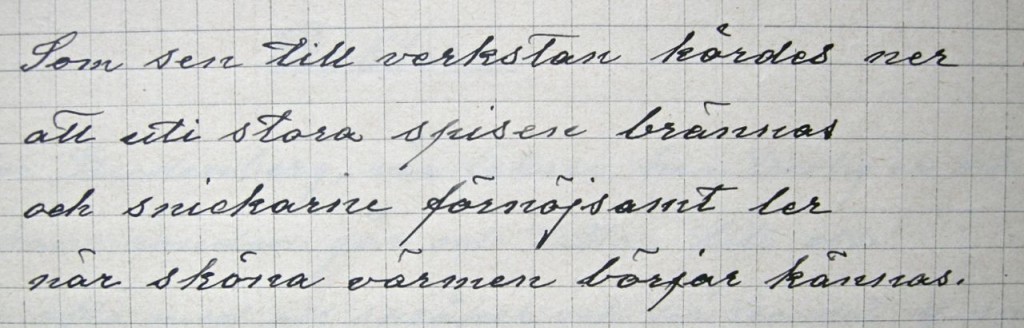 Som sen till verkstan kördes ner
att uti stora spisen brännas
och snickarne förnöjsamt ler
när sköna värmen börjar kännas.